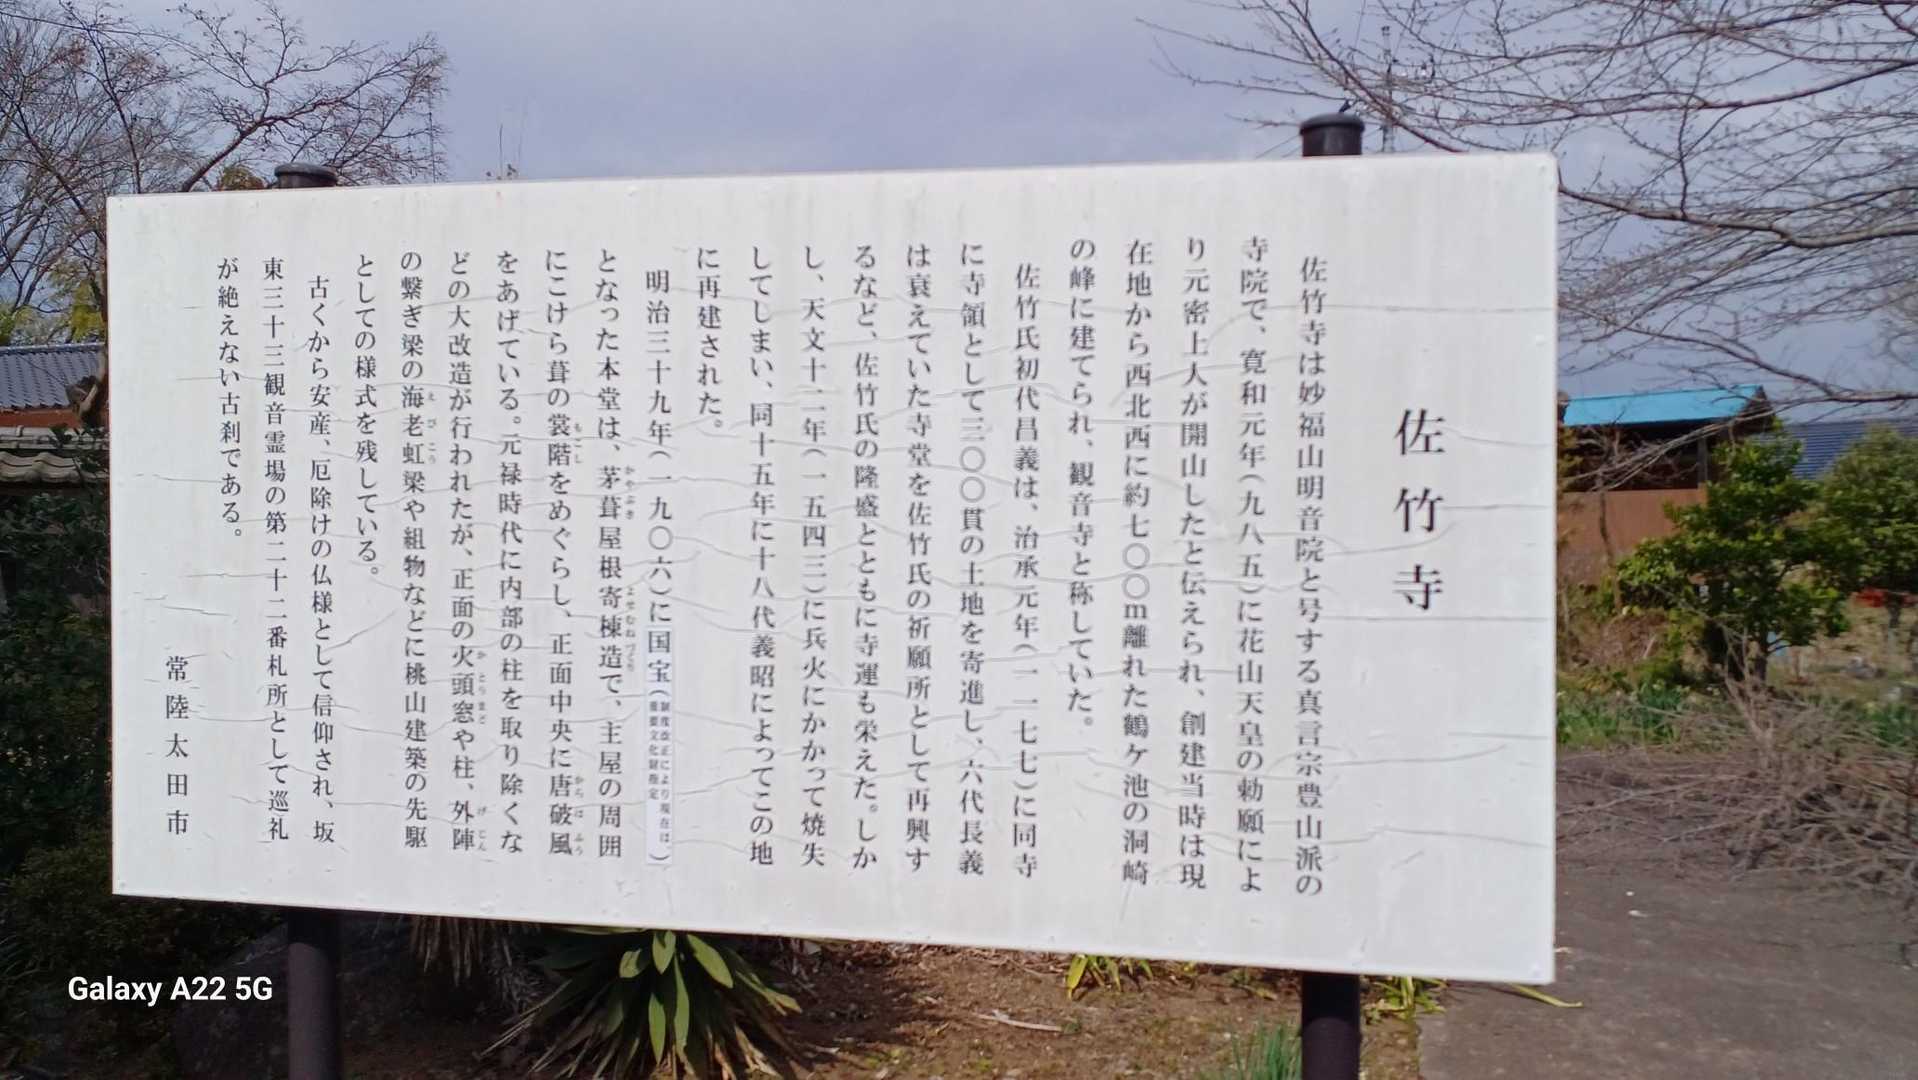 佐竹寺
佐竹寺は妙福山明音院と号する真言宗豊山派の
寺院で、寛和元年(九八五)に花山天皇の勅願によ
り元密上人が開山したと伝えられ、創建当時は現
在地から西北西に約七〇〇m離れた鶴ケ池の洞崎
の峰に建てられ、観音寺と称していた。
佐竹氏初代昌義は、治承元年(一一七七)に同寺
に寺領として三〇〇貫の土地を寄進し、六代長義
は衰えていた寺堂を佐竹氏の祈願所として再興す
るなど、佐竹氏の隆盛とともに寺運も栄えた。しか
し、天文十二年(一五四三)に兵火にかかって焼失
してしまい、同十五年に十八代義昭によってこの地
に再建された。
明治三十九年(一九〇六)に国宝(制度改正により現在は、重要文化財指定)
となった本堂は、茅葺屋根寄棟造で、主屋の周囲
かやぶき よせむねづくり
にこけら葺の裳階をめぐらし、正面中央に唐破風
もこし からはふう
をあげている。元禄時代に内部の柱を取り除くな
どの大改造が行われたが、正面の火頭窓や柱、外陣
かとうまど げじん
の繋ぎ梁の海老虹梁や組物などに桃山建築の先駆
えびこう
としての様式を残している。
古くから安産、厄除けの仏様として信仰され、坂
東三十三観音霊場の第二十二番札所として巡礼
が絶えない古刹である。
常陸太田市
Galaxy A22 5G